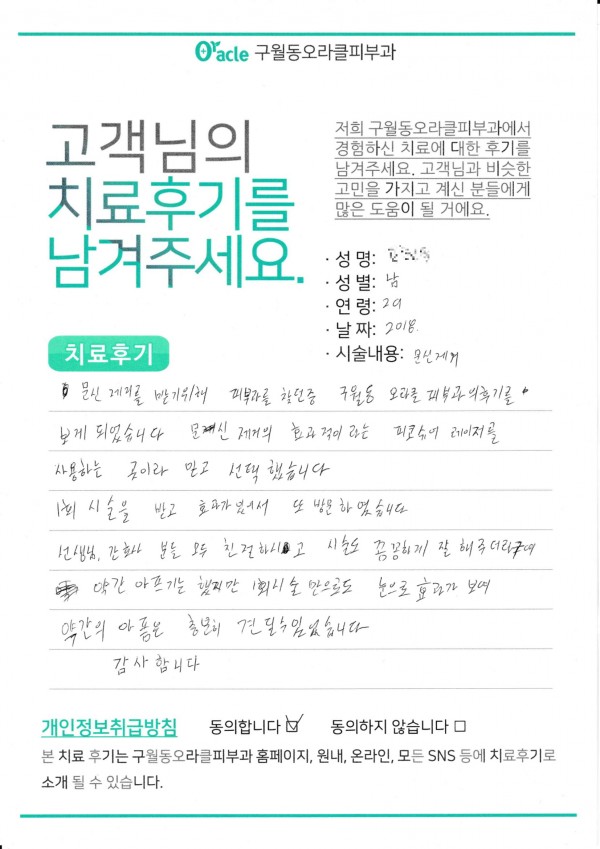 Oracle 구월동오라클피부과
고객님의
치료후기를
남겨주세요.
저희 구월동오라클피부과에서
경험하신 치료에 대한 후기를
남겨주세요. 고객님과 비슷한
고민을 가지고 계신 분들에게
많은 도움이 될 거에요.
· 성 명:
· 성 별: 남
· 연 령: 29
· 날 짜: 2018.
· 시술내용: 문신제거
치료후기
문신 제거를 받기위해 피부과를 찾던중 구월동 오라클 피부과의 후기를
보게 되었습니다 문신 제거의 효과적이라는 피코슈어 레이저를
사용하는 곳이라 믿고 선택 했습니다
1회 시술을 받고 효과가 있어서 또 방문하였습니다
선생님, 간호사 분들 모두 친절하시고 시술도 꼼꼼하게 잘 해주더라구여
약간 아프기는 했지만 1회시술 만으로도 눈으로 효과가 보여
약간의 아픔은 충분히 견딜수있었습니다
감사합니다
개인정보취급방침 동의합니다 ☑ 동의하지 않습니다 □
본 치료 후기는 구월동오라클피부과 홈페이지, 원내, 온라인, 모든 SNS 등에 치료후기로
소개 될 수 있습니다.